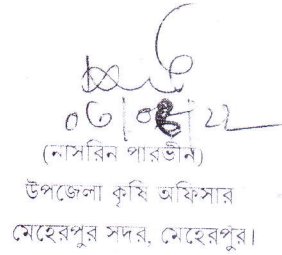 (নাসরিন পারভীন)
উপজেলা কৃষি অফিসার
মেহেরপুর সদর, মেহেরপুর।